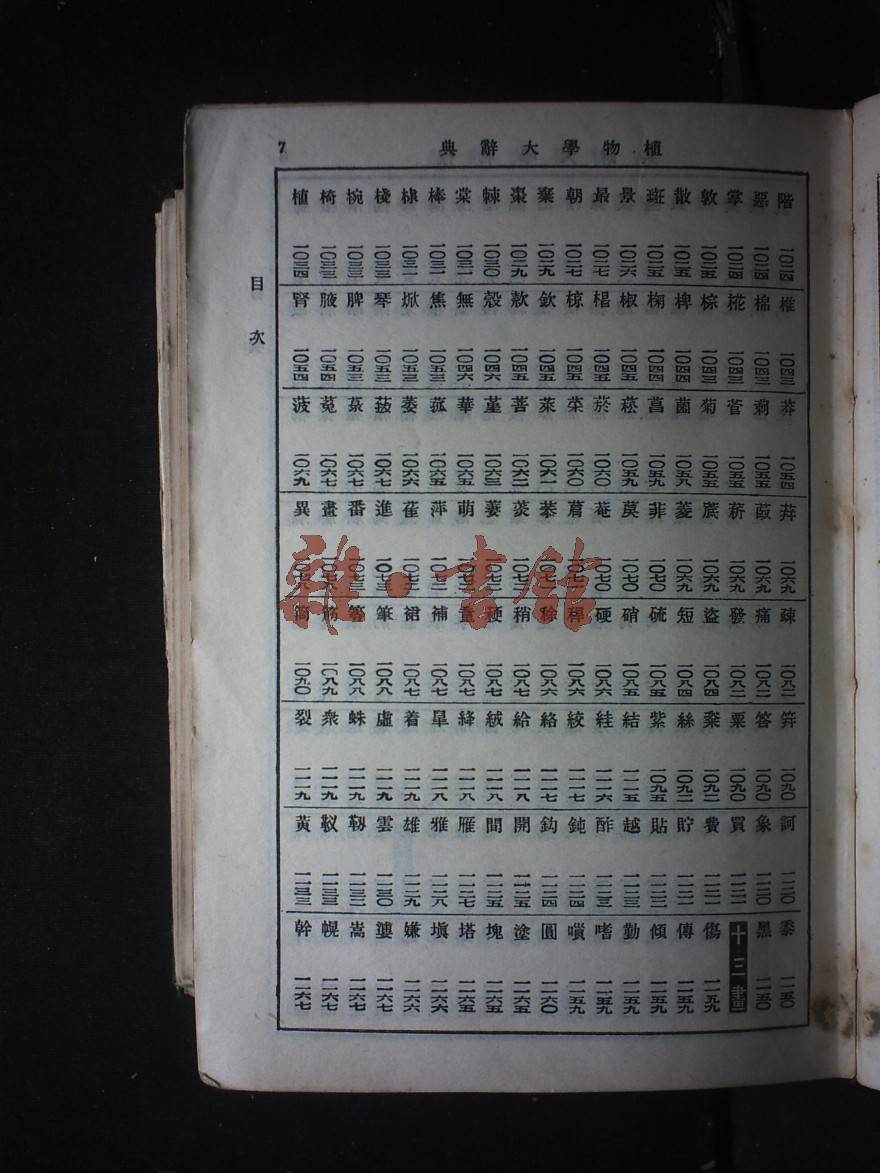 植物學大辭典
7
目次
階 惡 掌 敦 散 斑 景 最 朝 棄 棗 棘 棠 棒 棣 棧 椀 椅 植
一〇二四 一〇二四 一〇二四 一〇二五 一〇二五 一〇二五 一〇二六 一〇二七 一〇二七 一〇二九 一〇二九 一〇三〇 一〇三一 一〇三一 一〇三一 一〇三三 一〇三三 一〇三三 一〇三四
椎 棉 椛 棕 椑 椈 椒 椙 椋 欽 款 殼 無 焦 焮 琴 脾 腋 腎
一〇四三 一〇四三 一〇四三 一〇四三 一〇四四 一〇四四 一〇四四 一〇四五 一〇四五 一〇四五 一〇四五 一〇四六 一〇四六 一〇五三 一〇五三 一〇五三 一〇五三 一〇五四 一〇五四
莽 萕 菅 菊 菌 菖 菘 菸 菜 萊 菩 菫 華 菰 萎 菝 菉 菟 菠
一〇五四 一〇五五 一〇五五 一〇五五 一〇五八 一〇五九 一〇五九 一〇六〇 一〇六〇 一〇六一 一〇六二 一〇六三 一〇六五 一〇六五 一〇六六 一〇六七 一〇六七 一〇六七 一〇六九
菱 菲 萇 菴 萌 萍 萑 進 番 畫 異
一〇六九 一〇六九 一〇六九 一〇六九 一〇六九 一〇七〇 一〇七〇 一〇七〇
疎 痛 發 盜 短 硫 硝 硬 稈 稌 稍 稉 童 補 裙 筆 等 筋 筒
一〇八二 一〇八二 一〇八二 一〇八四 一〇八四 一〇八五 一〇八五 一〇八六 一〇八六 一〇八六 一〇八七 一〇八七 一〇八七 一〇八七 一〇八七 一〇八八 一〇八八 一〇八九 一〇九〇
笄 答 粟 粢 絲 紫 結 絓 絞 絡 給 絨 絳 着 虛 蛛 衆 裂
一〇九〇 一〇九〇 一〇九〇 一〇九二 一〇九二 一〇九五 一一一五 一一一六 一一一七 一一一七 一一一八 一一一八 一一一八 一一一九 一一一九 一一一九 一一一九 一一一九 一一一九
訶 象 買 費 貯 貼 越 酢 鈍 鈎 開 間 雁 雅 雄 雲 靱 黃
一一二〇 一一二〇 一一二一 一一二一 一一二一 一一二三 一一二三 一一二三 一一二四 一一二四 一一二五 一一二五 一一二七 一一二八 一一二九 一一三〇 一一三二 一一三三 一一三三
黍 黑 十三畫 傷 傳 傾 勤 嗜 嗩 圓 塗 塊 塔 塡 嫌 嵩 幌 幹
一一五〇 一一五〇 一一五九 一一五九 一一五九 一一五九 一一五九 一一五九 一一六〇 一一六五 一一六五 一一六五 一一六六 一一六六 一一六七 一一六七 一一六七 一一六七
雜·書館